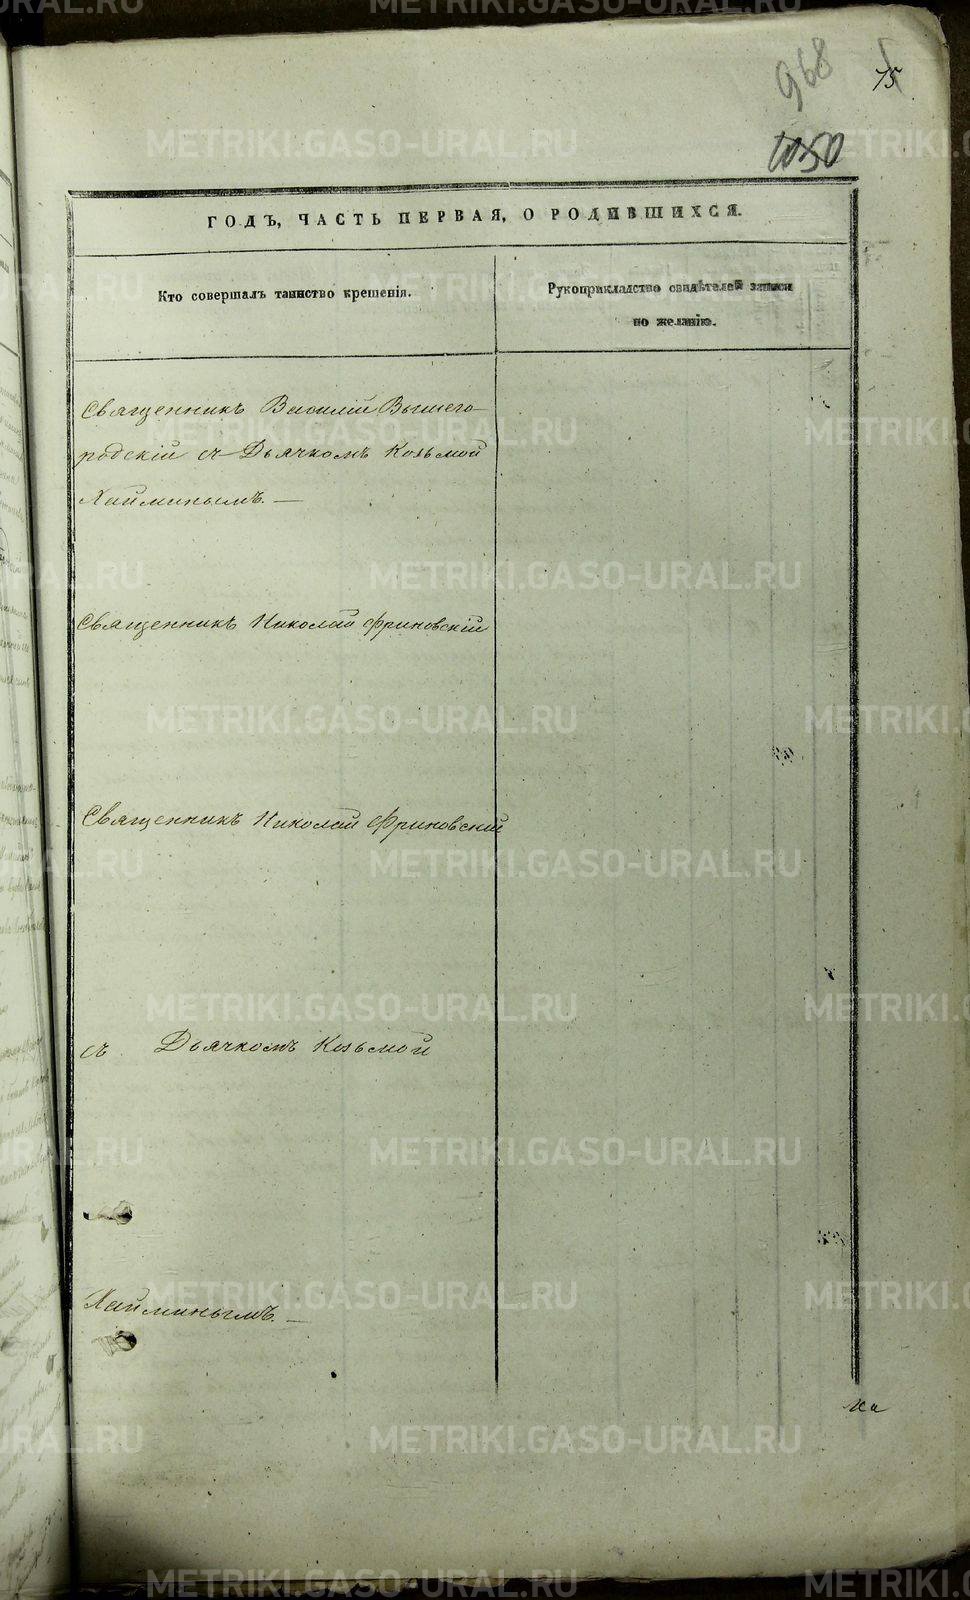 968
75
1050
ГОДЪ, ЧАСТЬ ПЕРВАЯ, О РОДИВШИХСЯ.
Кто совершалъ таинство крещенія.
Рукоприкладство свидѣтелей записи
по желанію.
Священникъ Василій Вышего-
родскій съ Дьячкомъ Козьмой
Хайминымъ. —
Священникъ Николай Фриновскій
Священникъ Николай Фриновскій
съ Дьячкомъ Козьмой
Хайминымъ. —
METRIKI.GASO-URAL.RU